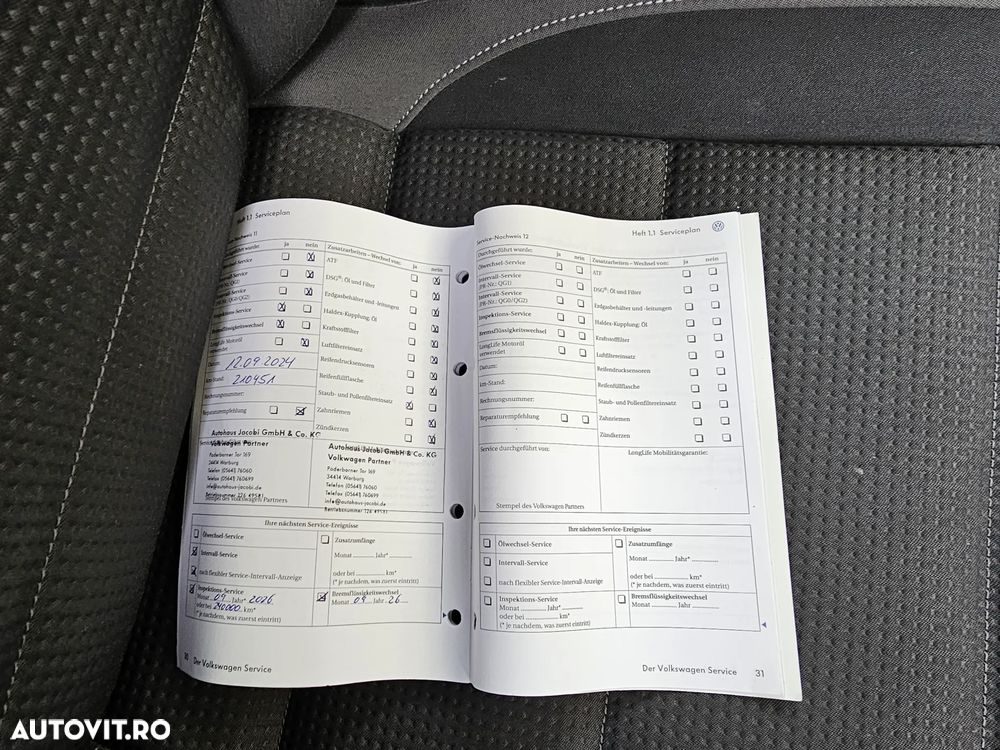 Heft 1.1 Serviceplan
Nachweis 11
geführt wurde:
ja
nein
Zusatzarbeiten – Wechsel von:
ja
nein
Service
ATF
Service
DSG®: Öl und Filter
Service
QG0/QG2)
Erdgasbehälter und -leitungen
Service
Haldex-Kupplung: Öl
Bremsflüssigkeitswechsel
Kraftstofffilter
LongLife Motoröl
verwendet
Luftfiltereinsatz
Datum: 12.09.2024
Reifendrucksensoren
km-Stand: 210451
Reifenfüllflasche
Rechnungsnummer:
Staub- und Pollenfiltereinsatz
Reparaturempfehlung
Zahnriemen
Zündkerzen
Autohaus Jacobi GmbH & Co. KG
Volkswagen Partner
Paderborner Tor 169
34414 Warburg
Telefon (05641) 76060
Telefax (05641) 760699
info@autohaus-jacobi.de
Betriebsnummer 126 49581
Stempel des Volkswagen Partners
Autohaus Jacobi GmbH & Co. KG
Volkswagen Partner
Paderborner Tor 169
34414 Warburg
Telefon (05641) 76060
Telefax (05641) 760699
info@autohaus-jacobi.de
Betriebsnummer 126 49581
Ihre nächsten Service-Ereignisse
Ölwechsel-Service
Intervall-Service
nach flexibler Service-Intervall-Anzeige
Inspektions-Service
Monat 09 Jahr* 2026
oder bei 240000 km*
(* je nachdem, was zuerst eintritt)
Zusatzumfänge
Monat ............ Jahr* ............
oder bei ............ km*
(* je nachdem, was zuerst eintritt)
Bremsflüssigkeitswechsel
Monat 09 Jahr 26
30 Der Volkswagen Service
Service-Nachweis 12
Heft 1.1 Serviceplan
Durchgeführt wurde:
ja
nein
Zusatzarbeiten – Wechsel von:
ja
nein
Ölwechsel-Service
ATF
Intervall-Service
(PR-Nr.: QG1)
DSG®: Öl und Filter
Intervall-Service
(PR-Nr.: QG0/QG2)
Erdgasbehälter und -leitungen
Inspektions-Service
Haldex-Kupplung: Öl
Bremsflüssigkeitswechsel
Kraftstofffilter
LongLife Motoröl
verwendet
Luftfiltereinsatz
Datum:
Reifendrucksensoren
km-Stand:
Reifenfüllflasche
Rechnungsnummer:
Staub- und Pollenfiltereinsatz
Reparaturempfehlung
Zahnriemen
Zündkerzen
Service durchgeführt von:
LongLife Mobilitätsgarantie:
Stempel des Volkswagen Partners
Ihre nächsten Service-Ereignisse
Ölwechsel-Service
Intervall-Service
nach flexibler Service-Intervall-Anzeige
Inspektions-Service
Monat ............ Jahr* ............
oder bei ............ km*
(* je nachdem, was zuerst eintritt)
Zusatzumfänge
Monat ............ Jahr* ............
oder bei ............ km*
(* je nachdem, was zuerst eintritt)
Bremsflüssigkeitswechsel
Monat ............ Jahr ............
Der Volkswagen Service 31
AUTOVIT.RO